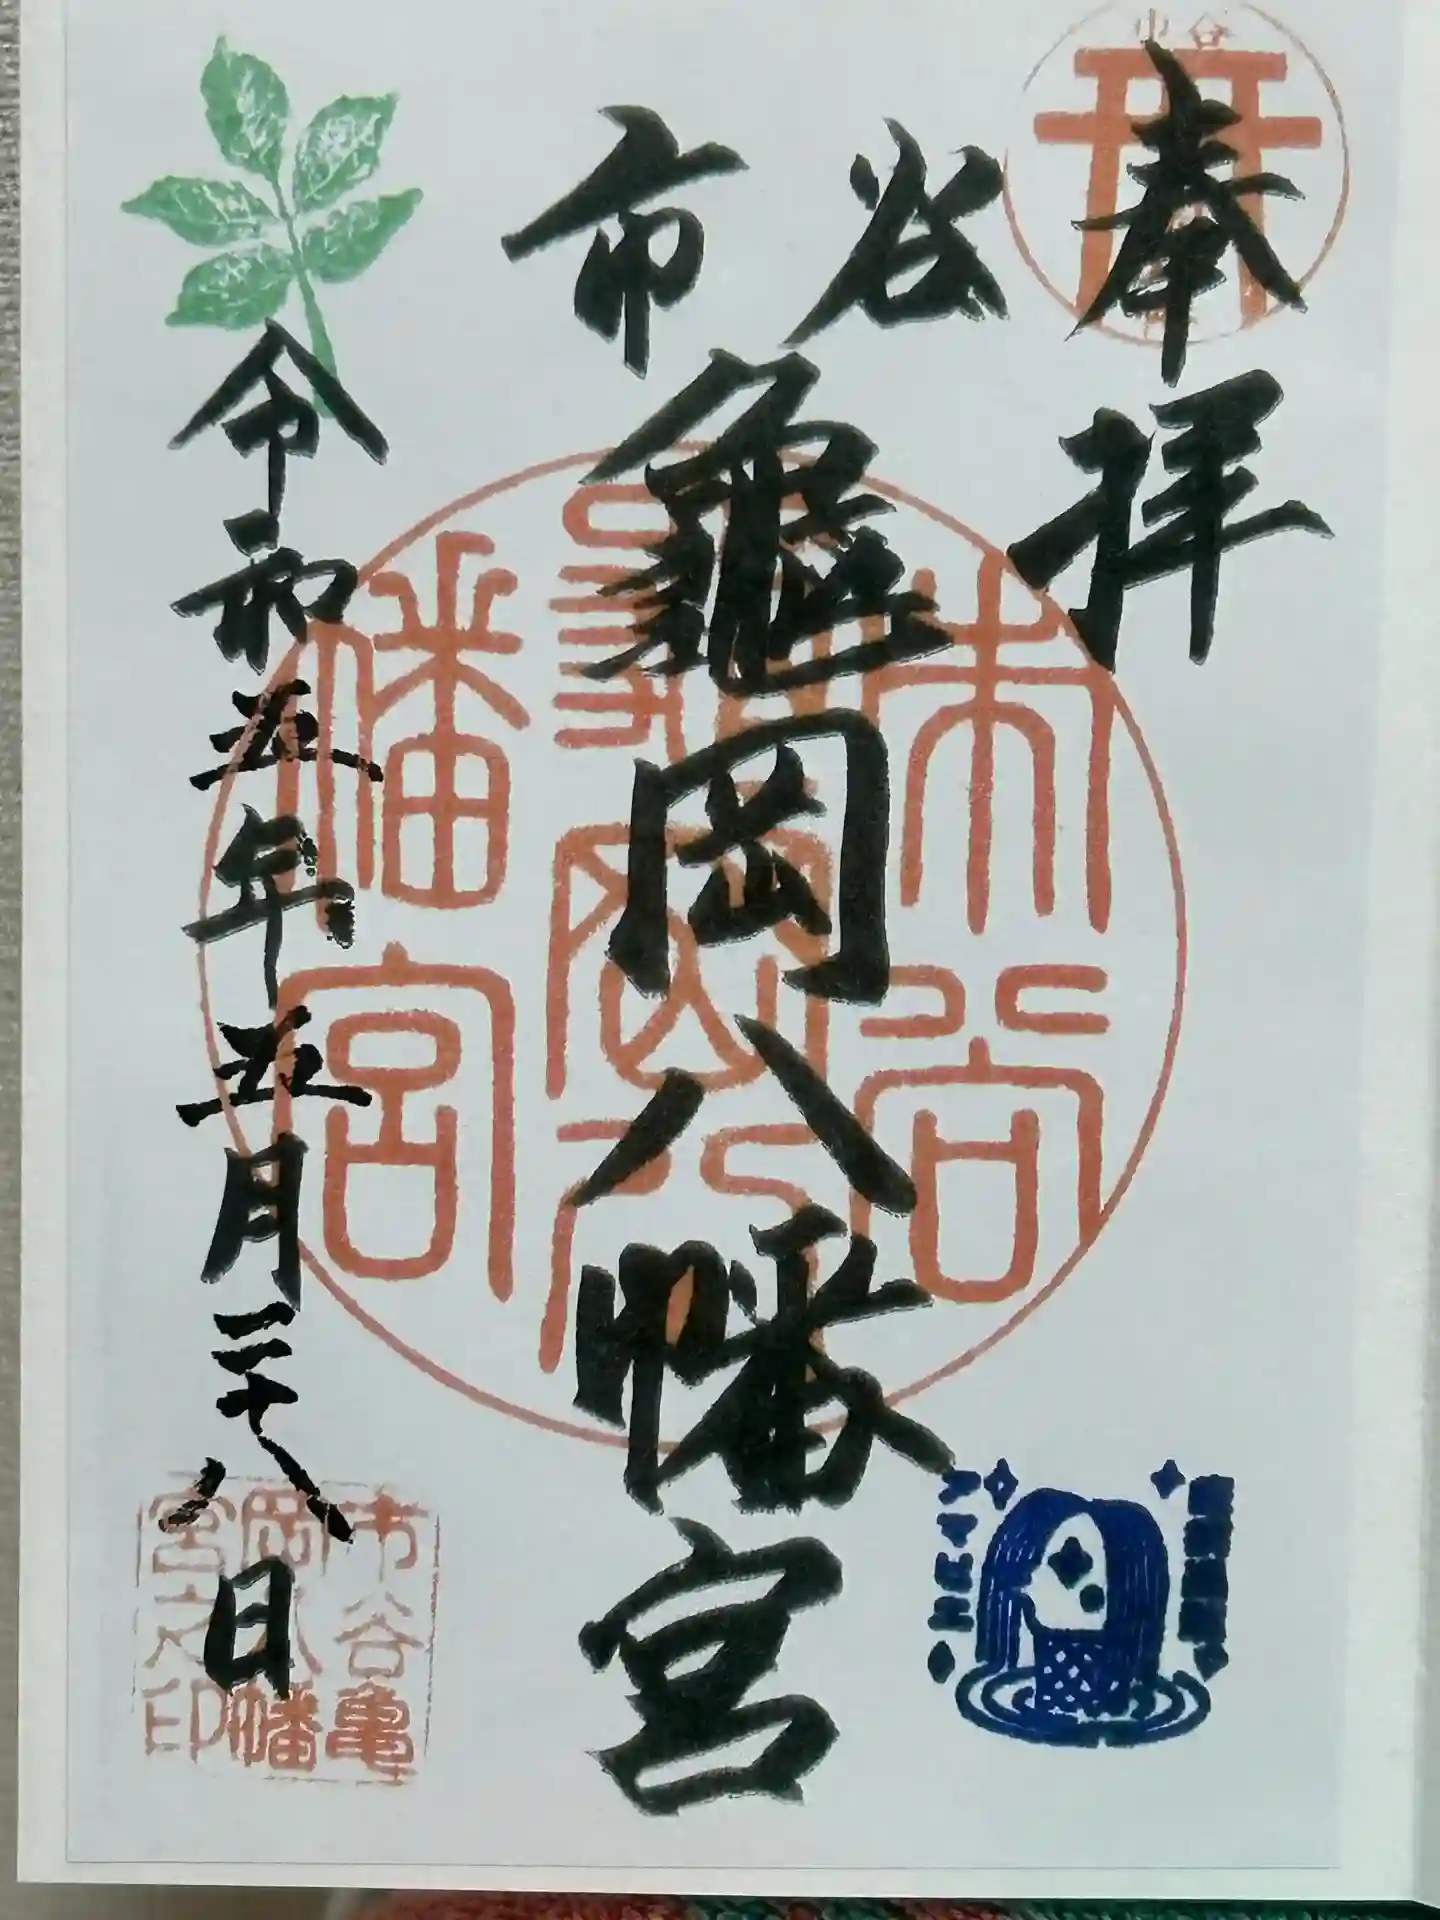 奉拝
市谷
亀岡八幡宮
令和五年五月二十八日
市谷
亀岡八
幡宮
市谷亀
岡八幡
宮之印
アマビエ